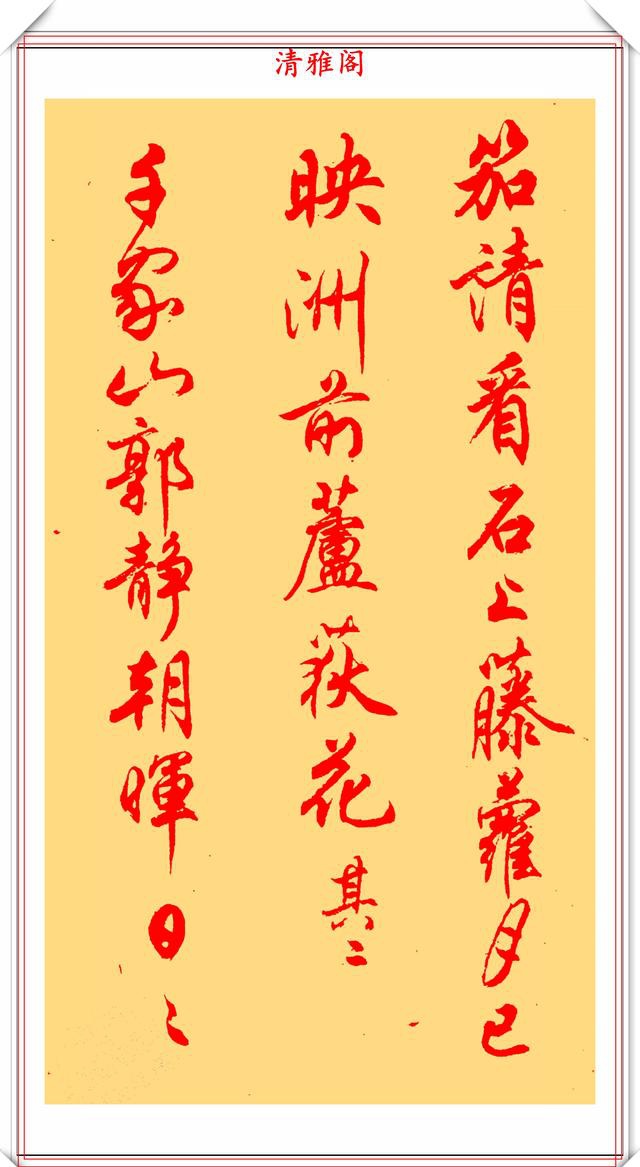 清雅阁
笳請看石上藤蘿月已
映洲前蘆荻花其二
千家山郭静朝暉日〻